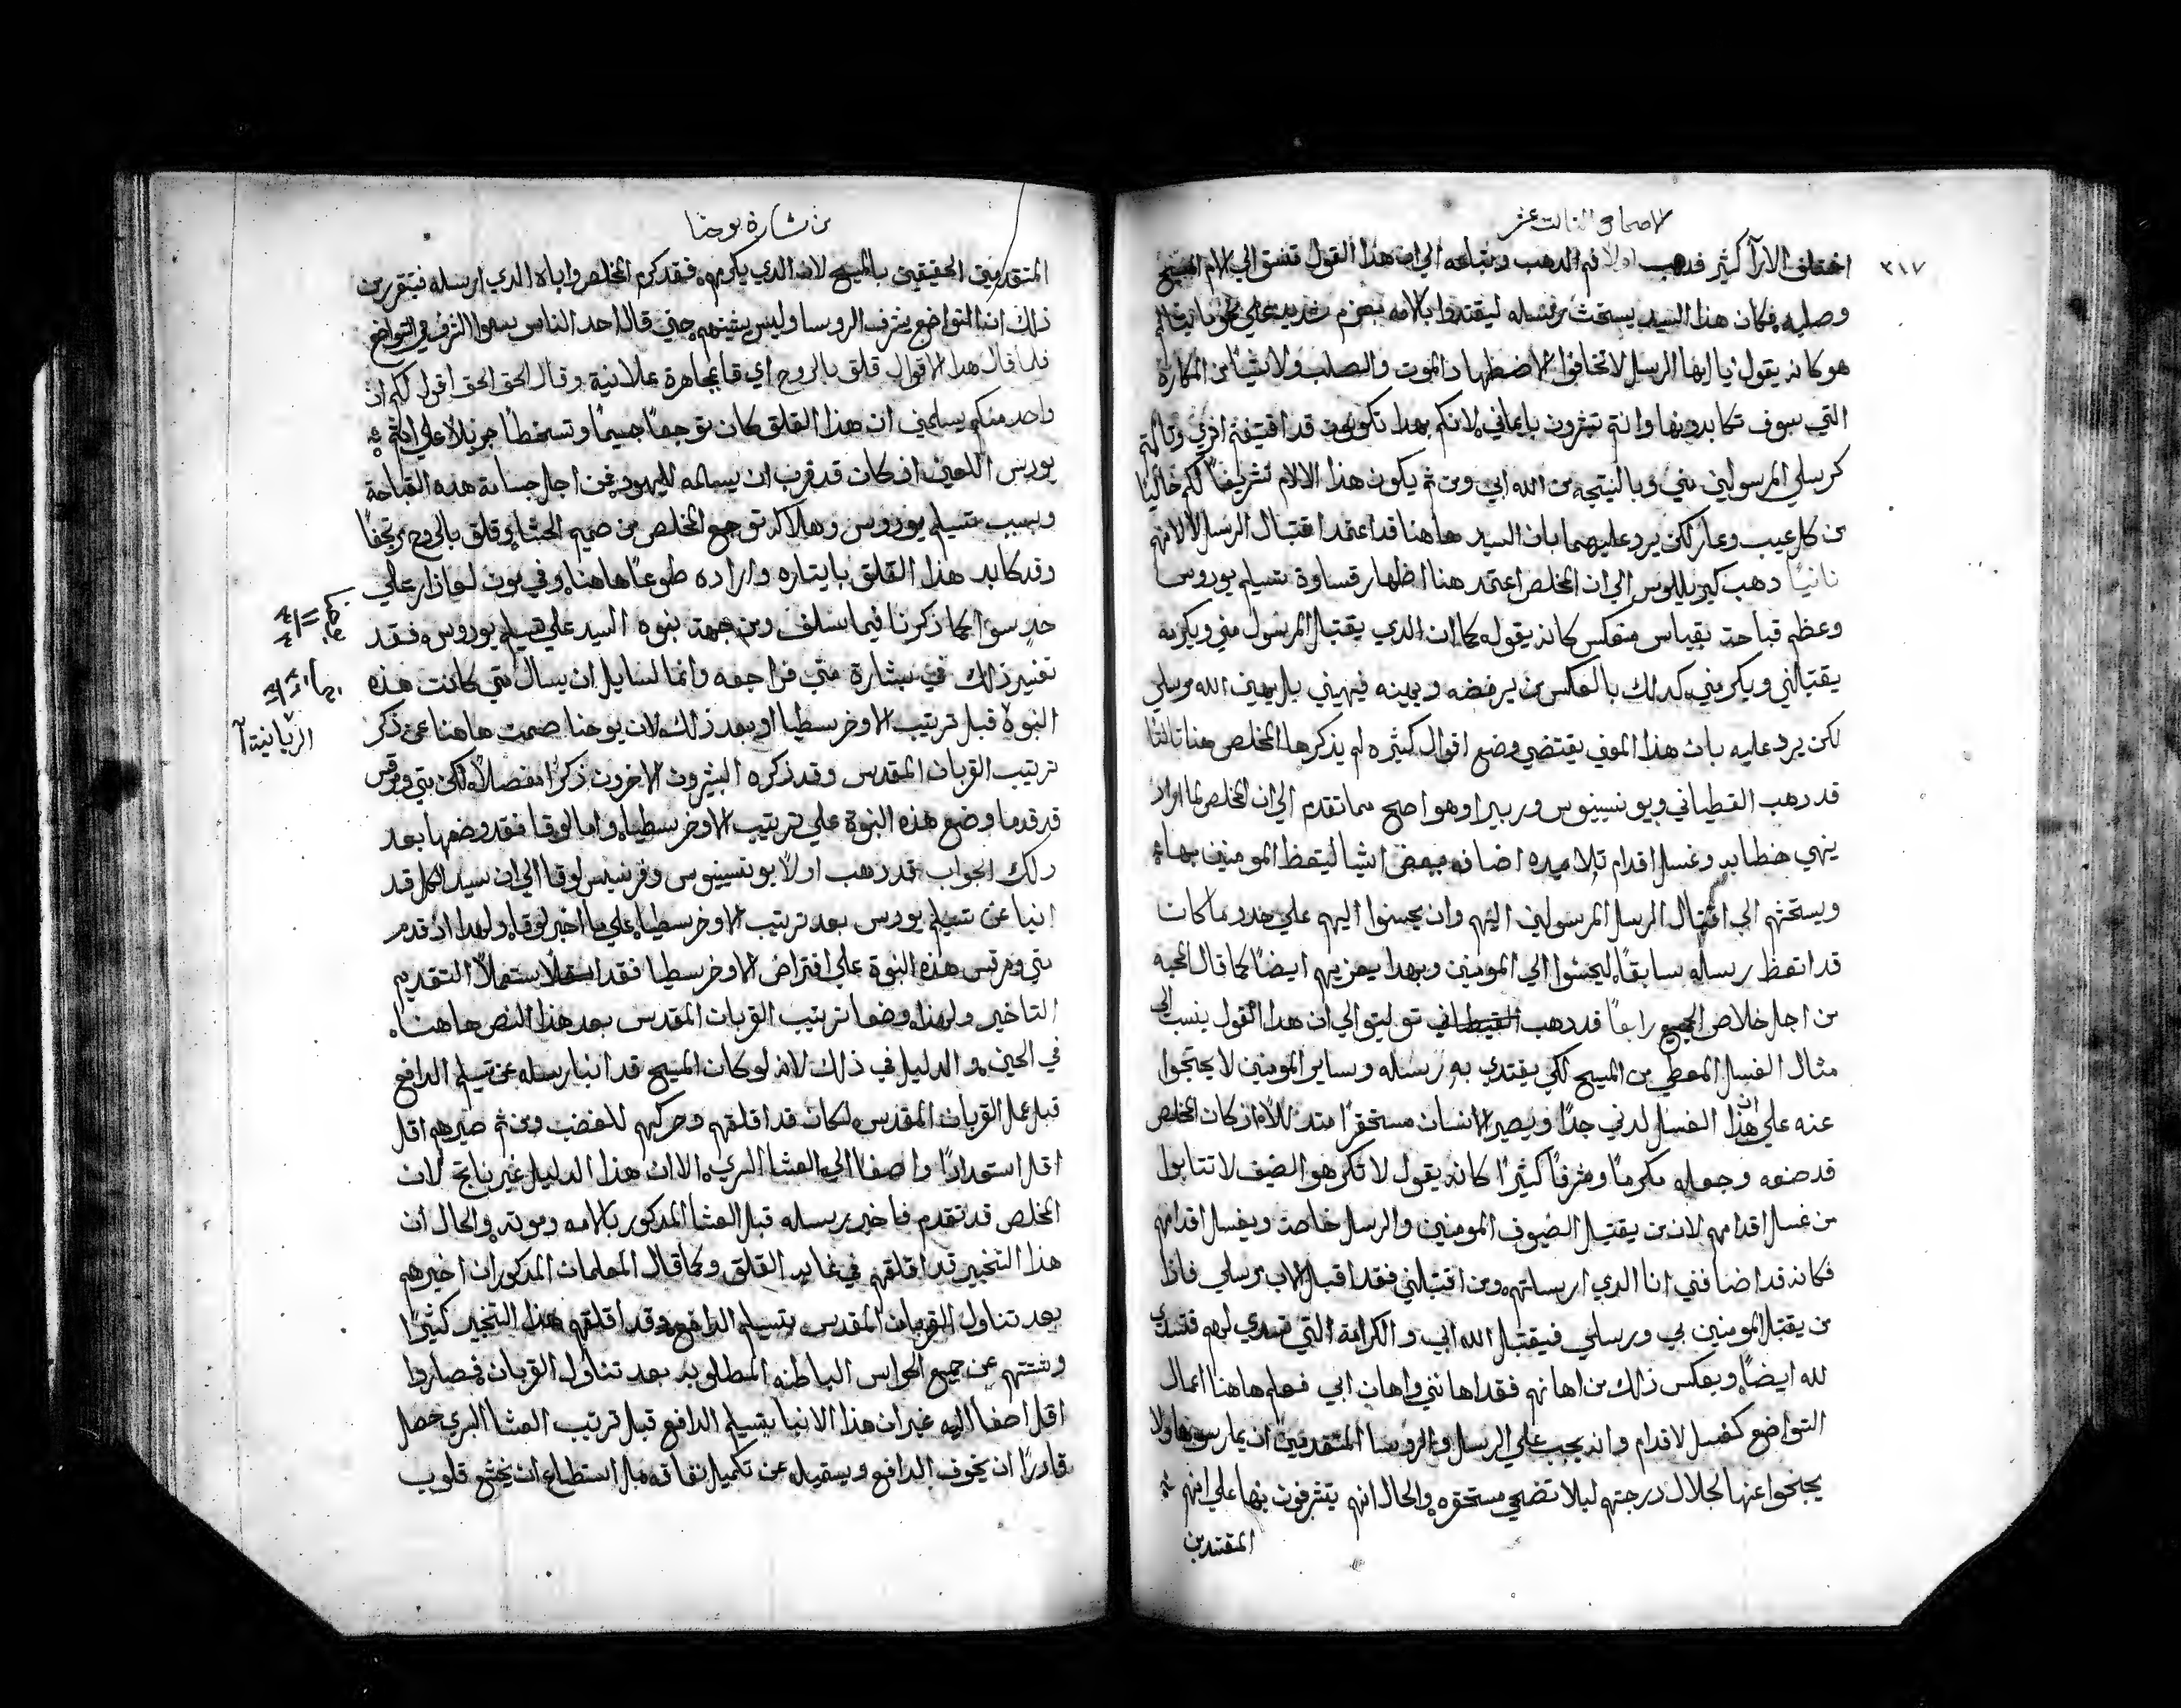 الاصحاح الثالث عشر
٣١٧
اختلف الارآ كثير فدهب اولا فم الدهب وتباعه الي ان هذا القول متسق الي الام المسيح
وصلبه فكان هذا السيد يستحث رسله ليقتدوا بالامه بعزم شديد علي
هو كانه يقول يا ايها الرسل لا تخافوا الاضطهاد والموت والصلب ولا شيا من المكاره
التي سوف تكابدونها وانتم تبشرون بايماني لانكم بهدا تكونون قد اقتفيتم اثري
كرسلي المرسولين مني وبالنتيجه من الله ابي ومن ثم يكون هذا الالام تشريفًا لكم خاليًا
من كل عيب وعار لكن يرد عليهما بان السيد هاهنا قد اعتمد اقتبال الرسل لا الامهم
ثانيًا دهب كيرلليوس الي ان المخلص اعتمد هنا اظهار قساوة تسليم يوروس
وعظم قباحته بقياس منعكس كانه يقول كما ان الدي يقتبل المرسول مني ويكرمه
يقتبلني ويكرمني كدلك بالعكس من يرفضه ويهينه فيهيني بل يهين الله مرسلي
لكن يرد عليه بان هذا المعني يقتضي وضع اقوال كثيره لم يذكرها المخلص هنا ثالثًا
قد دهب القيطاني ويونسينيوس وربيرا وهو اصح مما تقدم الي ان المخلص لما اراد
ينهي خطابه وغسل اقدام تلاميده اضافه ببعض اشيا ليتعظ المومنين بها
ويستحثهم الي اقتبال الرسل المرسولين اليهم وان يحسنوا اليهم علي حدو ما كان
قد اتعظ رسله سابقًا ليحسنوا الي المومنين وبهدا يعزيهم ايضًا كما قال المحبه
من اجل خلاص الجميع رابعًا قد دهب توليتو الي ان هدا القول ينسب الي
مثال الغسل المعطي من المسيح لكي يقتدي به رسله وساير المومنين لا يحتجوا
عنه علي ان هذا الغسل لدني جدًا ويصير الانسان مستحقرًا متدللًا اد كان المخلص
قد صنعه وجعله مكرمًا ومشرفًا كثيرًا كانه يقول لا تكرهوا الضيف لا تتابوا
من غسل اقدامهم لان من يقتبل الضيوف المومنين والرسل خاصة ويغسل اقدامهم
فكانه قد اضافني انا الدي ارسلتهم ومن اقتبلني فقد اقبل الاب مرسلي فاذا
من يقتبل المومنين بي ورسلي فيقتبل الله ابي والكرامة التي تسدي لهم فتسدي
لله ايضًا وبعكس ذلك من اهانهم فقد اهانني واهان ابي فعلم هاهنا اعمال
التواضع كغسل الاقدام وانه يجب علي الرسل والروسا المتقدمين ان يمارسونها ولا
يجنحوا عنها لجلال درجتهم ليلا تضحي مستحقره والحال انهم يتشرفون بها علي انهم
المقتدين
من بشارة يوحنا
المتقدمين الحقيقين بالمسيح لان الدي يكرمهم فقد كرم المخلص واباه الدي ارسله فيتقرر من
ذلك ان التواضع يشرف الروسا وليس يشينهم حتي قال احد الناس يسموا الشرف في التواضع
فلما قال هدا الاقوال قلق بالروح اي قال مجاهرة علانية وقال الحق الحق اقول لكم ان
واحد منكم يسلمني ان هذا القلق كان توجعًا جسيمًا وتسخطًا جزيلًا علي اثم
يوروس اللعين اذ كان قد قرب ان يسلمه لليهود فمن اجل جسامة هذه القباحة
وبسبب تسليم يوروس وهلاكه توجع المخلص من صميم الحشا وقلق بالروح مرتجفًا
وقد كابد هذا القلق بايثاره واراده طوعًا هاهنا وفي موت لعازار علي
حدٍ سوا كما ذكرنا فيما سلف ومن جهة نبوه السيد علي تسليم يوروس فقد
تفسير ذلك في بشارة متي فراجعه وانما لسايل ان يسال متي كانت هذه
النبوة قبل ترتيب الاوخرسطيا او بعد ذلك لان يوحنا صمت هاهنا عن ذكر
ترتيب القربان المقدس وقد ذكره البشيرون الاخرون ذكرًا مفصلًا لكن متي ومرقس
قد قدما وضع هذه النبوة علي ترتيب الاوخرسطيا واما لوقا فقد وضعها بعد
دلك الجواب قد دهب اولًا يونسينيوس وفرنسيس لوقا الي ان سيد الكل قد
انبا عن تسليم يوروس بعد ترتيب الاوخرسطيا علي ما اخبر لوقا ولهدا اذ قدم
متي ومرقس هذه النبوة علي افتراض الاوخرسطيا فقد استعملا التقديم
التاخير ولهذا وضعا ترتيب القربان المقدس بعد هذا النص هاهنا
في الحين والدليل في ذلك لانه لو كان المسيح قد انبا رسله عن تسليم الدافع
قبل عمل القربان المقدس لكان قد اقلقهم وحركهم للغضب ومن ثم صيرهم اقل
اقل استعدادًا واصغا الي العشا السري الا ان هذا الدليل غير ناتج لان
المخلص قد تقدم فاخبر رسله قبل العشا المدكور بالامه وموته والحال ان
هذا التخبير قد اقلقهم في غاية القلق وكما قال المعلمان المدكوران اخبرهم
بعد تناول القربان المقدس بتسليم الدافع وقد اقلقهم هذا التخبير كثيرًا
وشتتهم عن جميع الحواس الباطنه المطلوبه بعد تناول القربان فصاروا
اقل اصغا اليه غير ان هذا الانبا بتسليم الدافع قبل ترتيب العشا السري حصل
قادرًا ان يخوف الدافع ويستميله عن تكميل نفاقه بل استطاع ان يخشع قلوب
الربانية